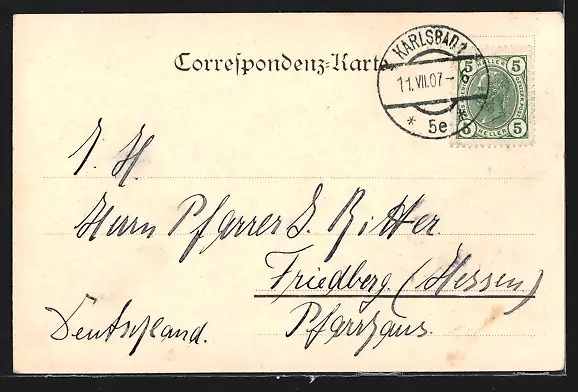 Correspondenz-Karte
KARLSBAD 1
11.VII.07-
* 5e *
5 HELLER 5
5 HELLER 5
Herrn Pfarrer D. Ritter
Friedberg (Hessen)
Pfarrhaus.
Deutschland.